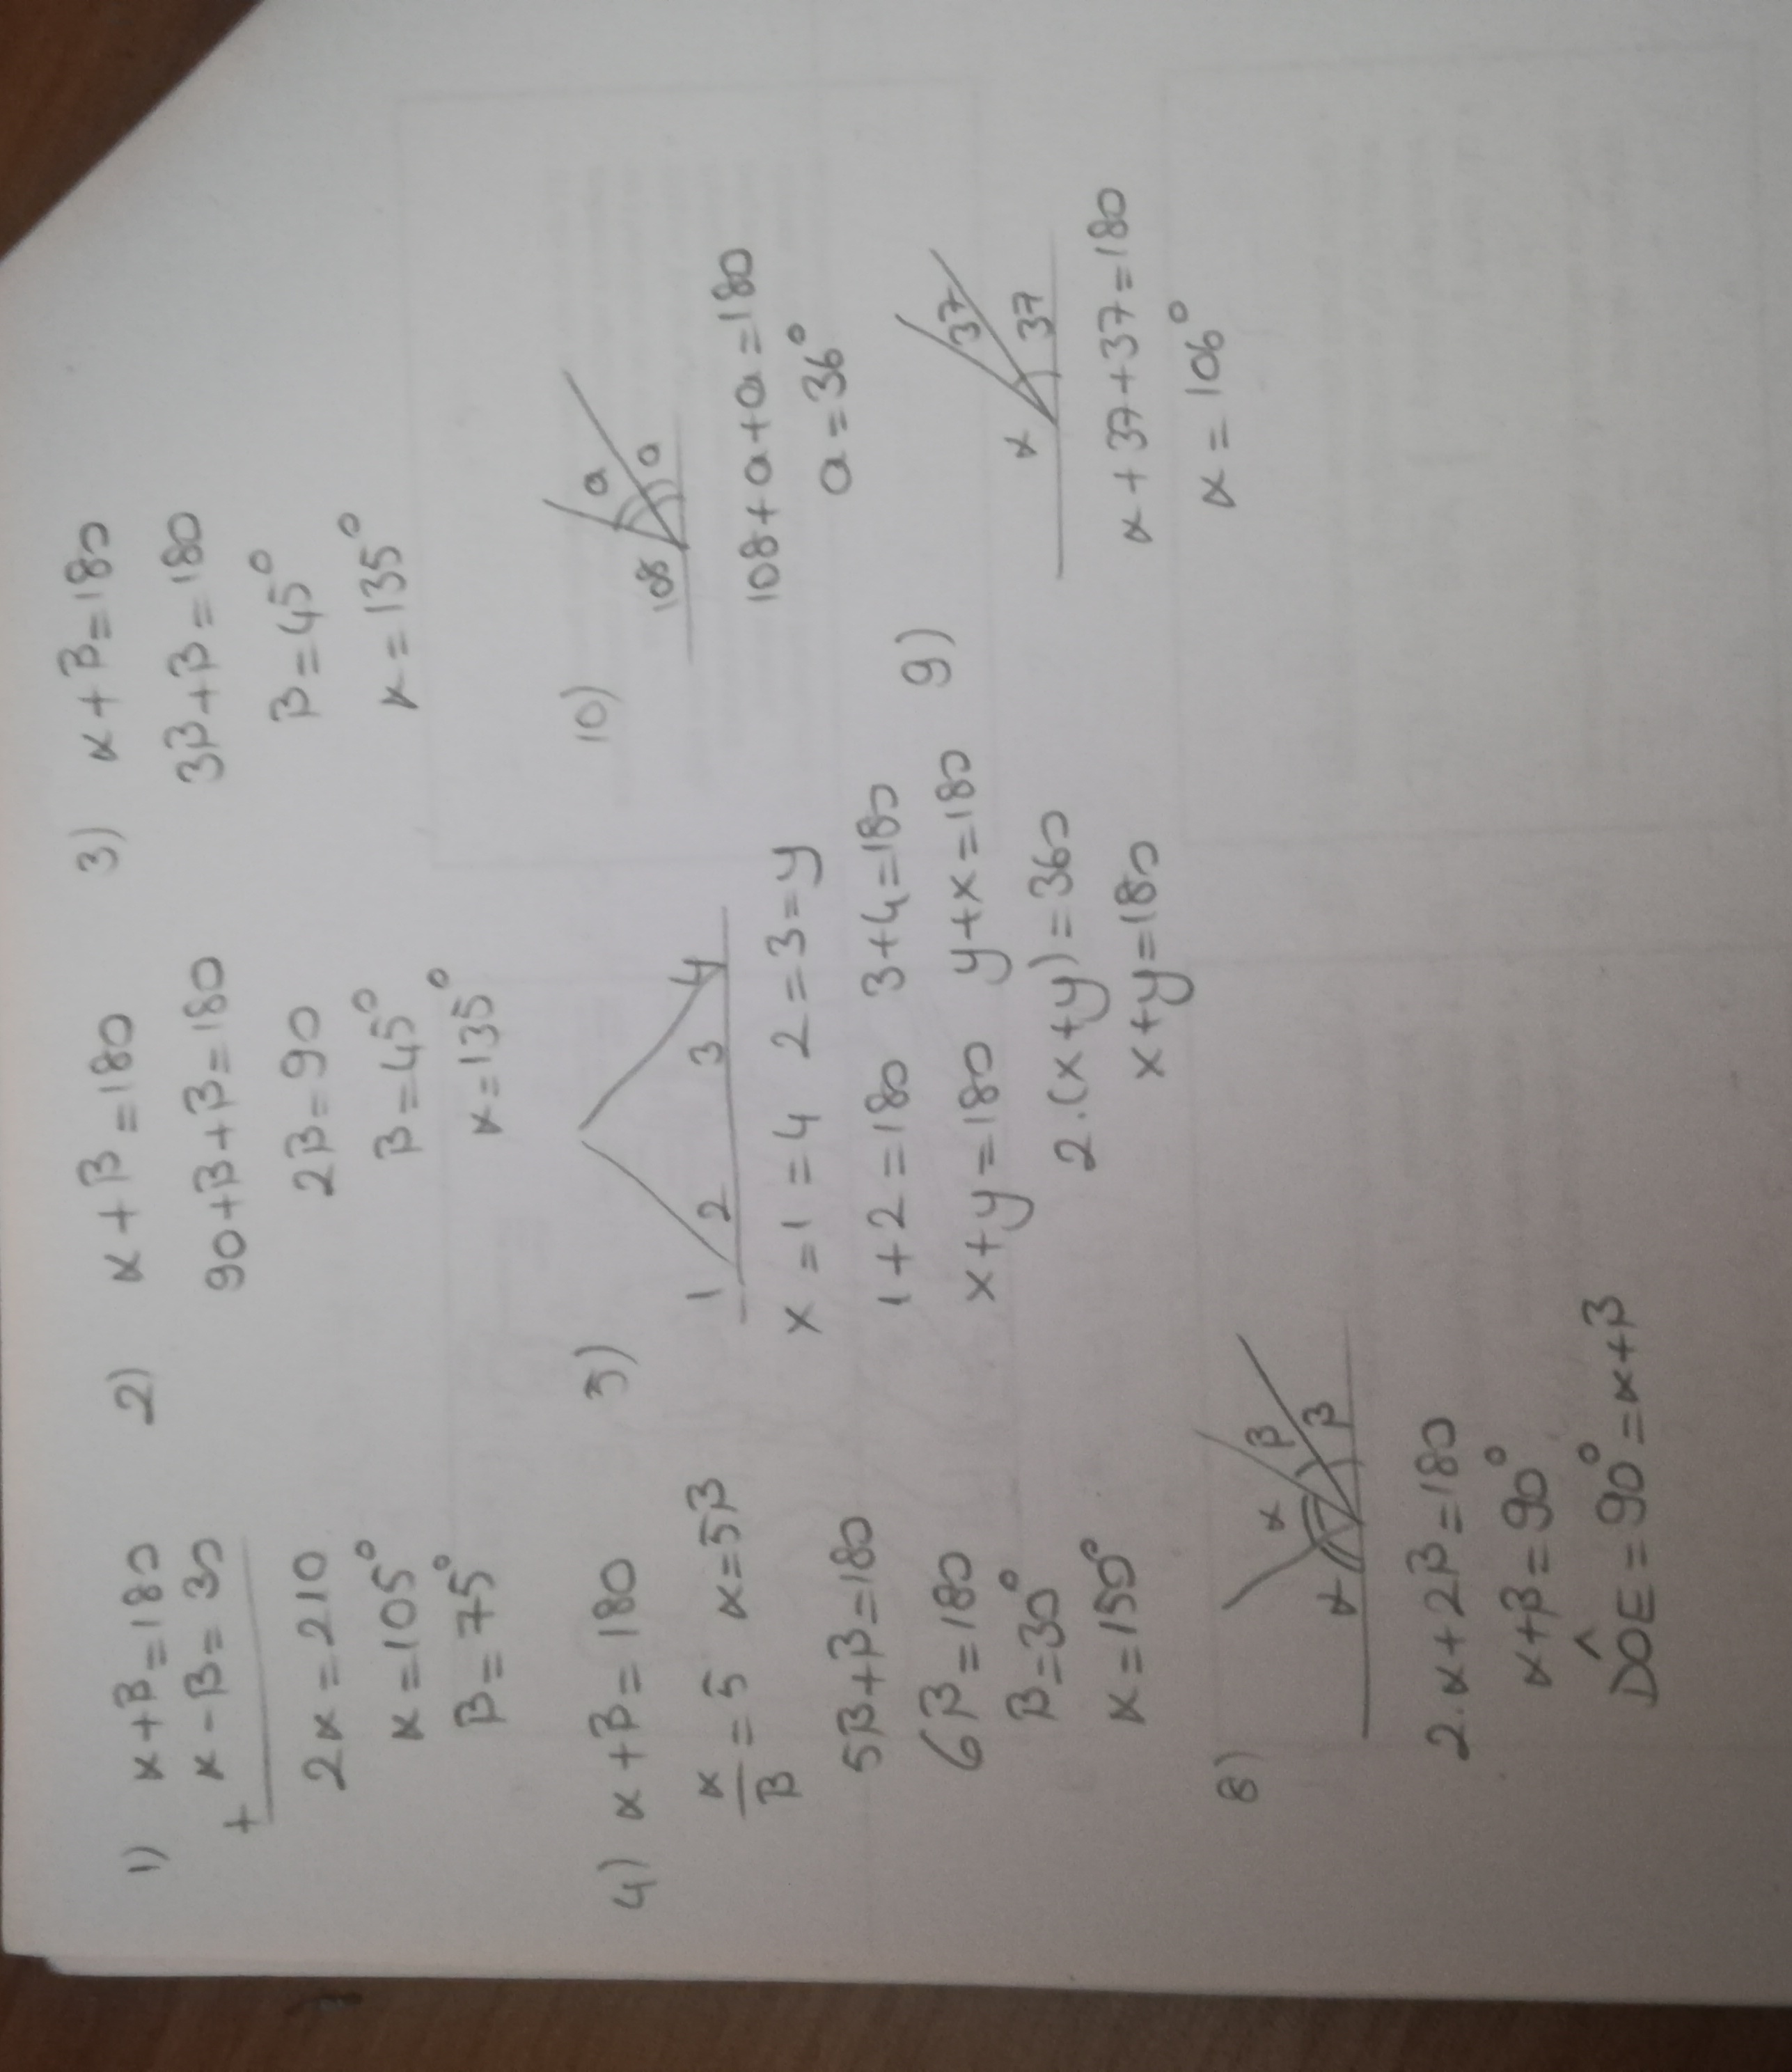 1) α+β=180
α-β=30
+
2α=210
α=105°
β=75°
2) α+β=180
90+β+β=180
2β=90
β=45°
α=135°
3) α+β=180
3β+β=180
β=45°
α=135°
4) α+β=180
α/β=5 α=5β
5β+β=180
6β=180
β=30°
α=150°
5)
1 2 3 4
x=1=4 2=3=y
1+2=180 3+4=180
x+y=180 y+x=180
2.(x+y)=360
x+y=180
10)
108 a a
108+a+a=180
a=36°
9)
α 37 37
α+37+37=180
α=106°
8)
α α β β
2.α+2β=180
α+β=90°
DÔE=90°=α+β